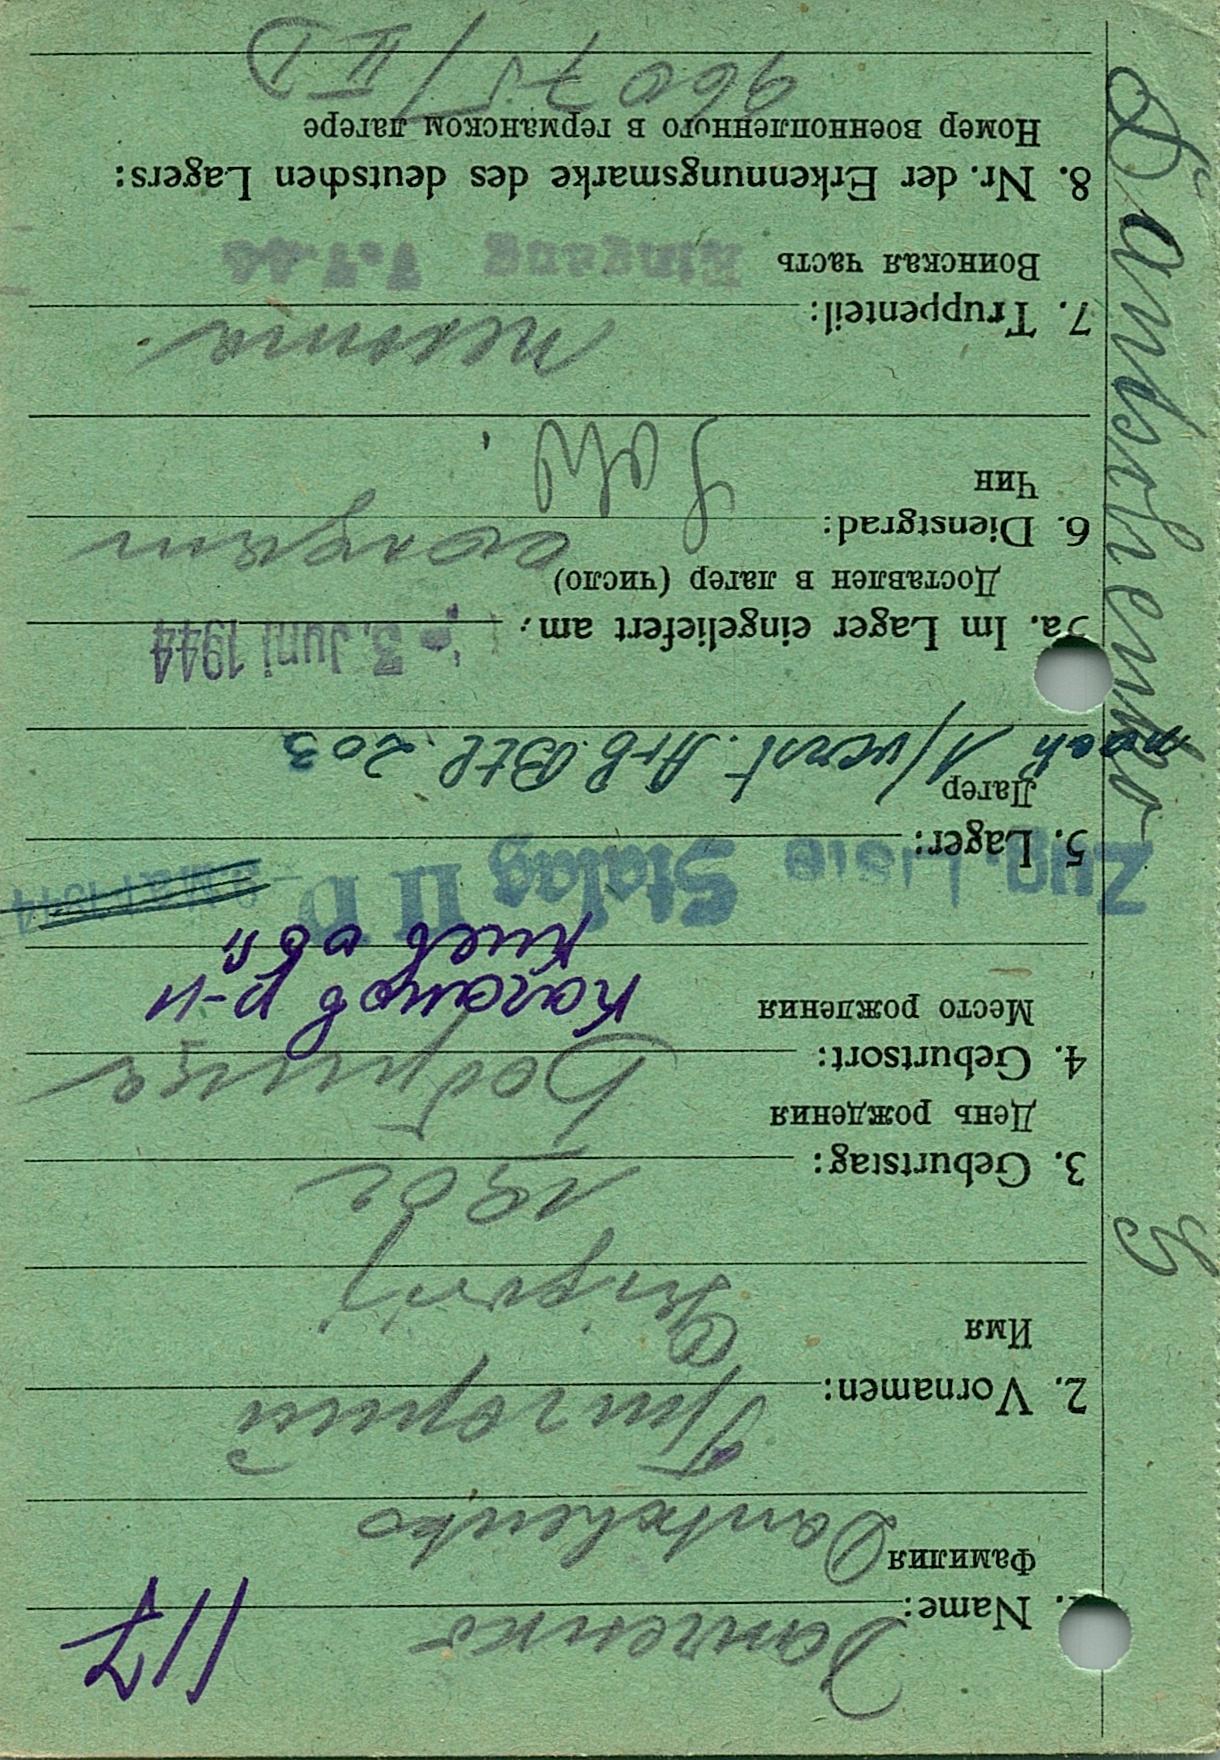 117
Данченко
1. Name:
Фамилия
Dantschenko
Григорий
2. Vornamen:
Имя
Grigorij
3. Geburtstag:
День рождения
4. Geburtsort:
Место рождения
р-н
Киев обл
Zug. Liste Stalag II D
5. Lager:
Лагер
nach 1/verst. Arb. Btl. 203
5a. Im Lager eingeliefert am:
- 3. Juni 1944
Доставлен в лагер (число)
солдат
6. Dienstgrad:
Чин
Sold.
7. Truppenteil:
пехота
Воинская часть
Eingang 7.7.44
8. Nr. der Erkennungsmarke des deutschen Lagers:
Номер военнопленного в германском лагере
96075/II D
Dantschenko